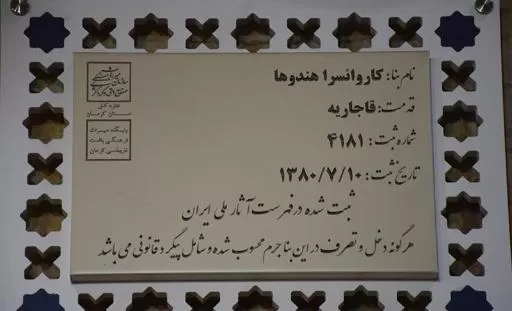 نام بنا: کاروانسرا هندوها
قدمت: قاجاریه
شماره ثبت: ۴۱۸۱
تاریخ ثبت: ۱۳۸۰/۷/۱۰
ثبت شده در فهرست آثار ملی ایران
هرگونه دخل و تصرف در این بنا جرم محسوب شده و شامل پیگرد قانونی می باشد
اداره کل
استان کرمان
پایگاه میراث
فرهنگی بافت
تاریخی کرمان